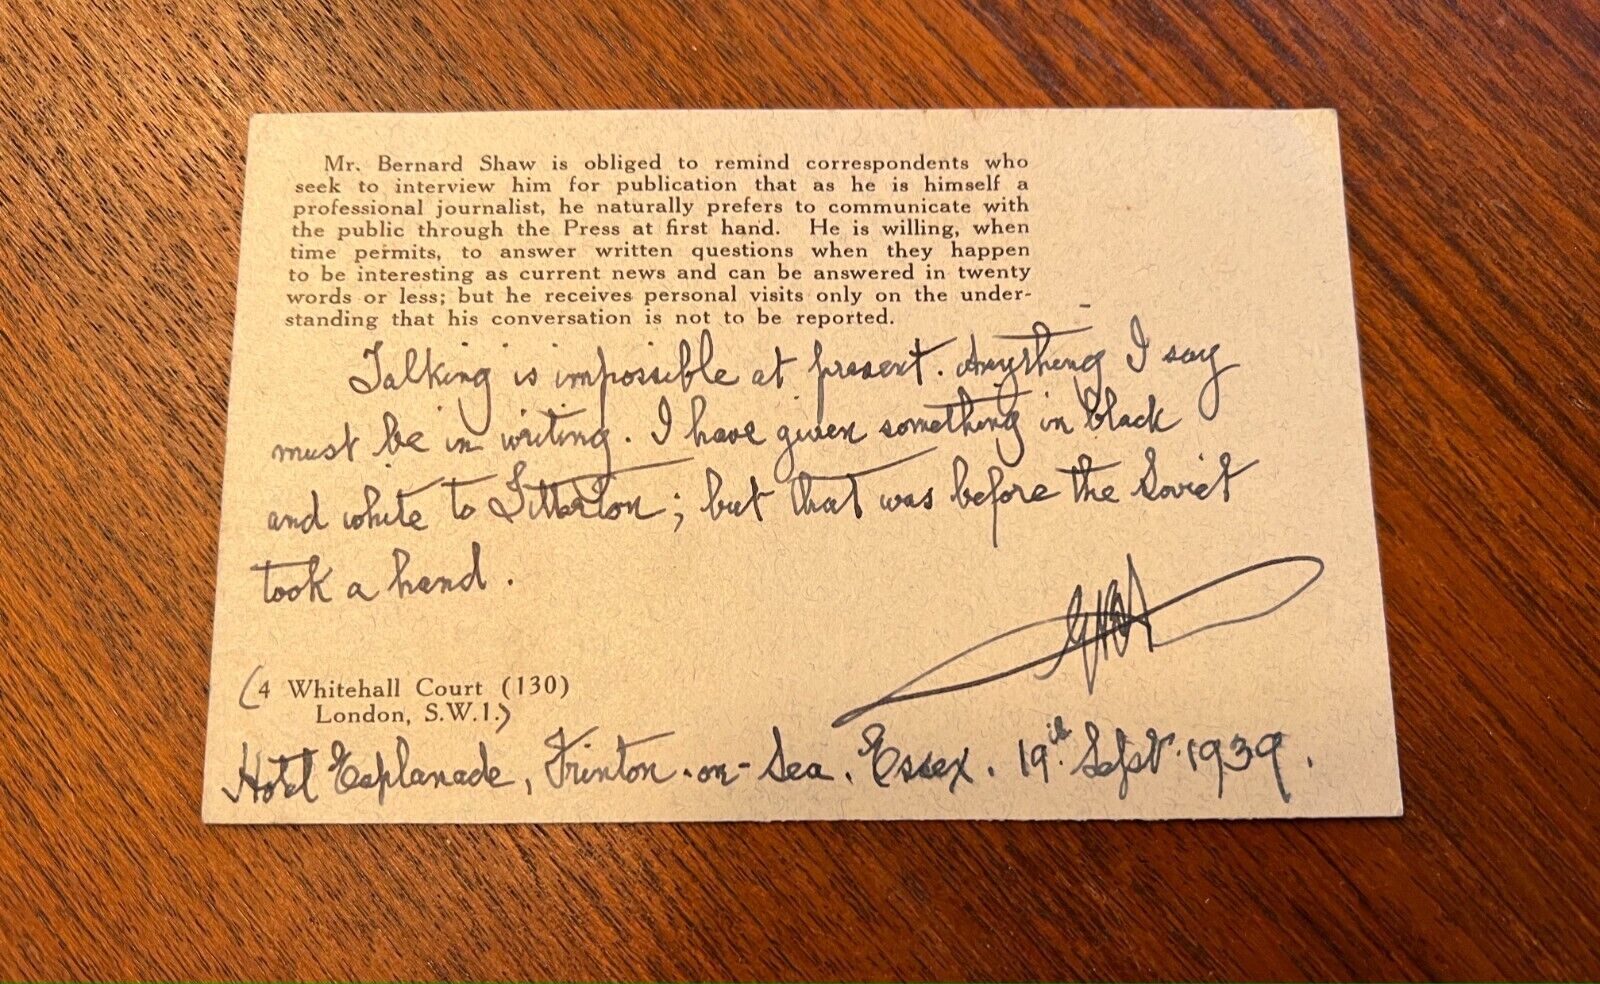 Mr. Bernard Shaw is obliged to remind correspondents who
seek to interview him for publication that as he is himself a
professional journalist, he naturally prefers to communicate with
the public through the Press at first hand. He is willing, when
time permits, to answer written questions when they happen
to be interesting as current news and can be answered in twenty
words or less; but he receives personal visits only on the under-
standing that his conversation is not to be reported.
Talking is impossible at present. Anything I say
must be in writing. I have given something in black
and white to Titterton; but that was before the Soviet
took a hand.
GBS
(4 Whitehall Court (130)
London, S.W.1.)
Hotel Esplanade, Frinton-on-Sea. Essex. 19th Sept. 1939.